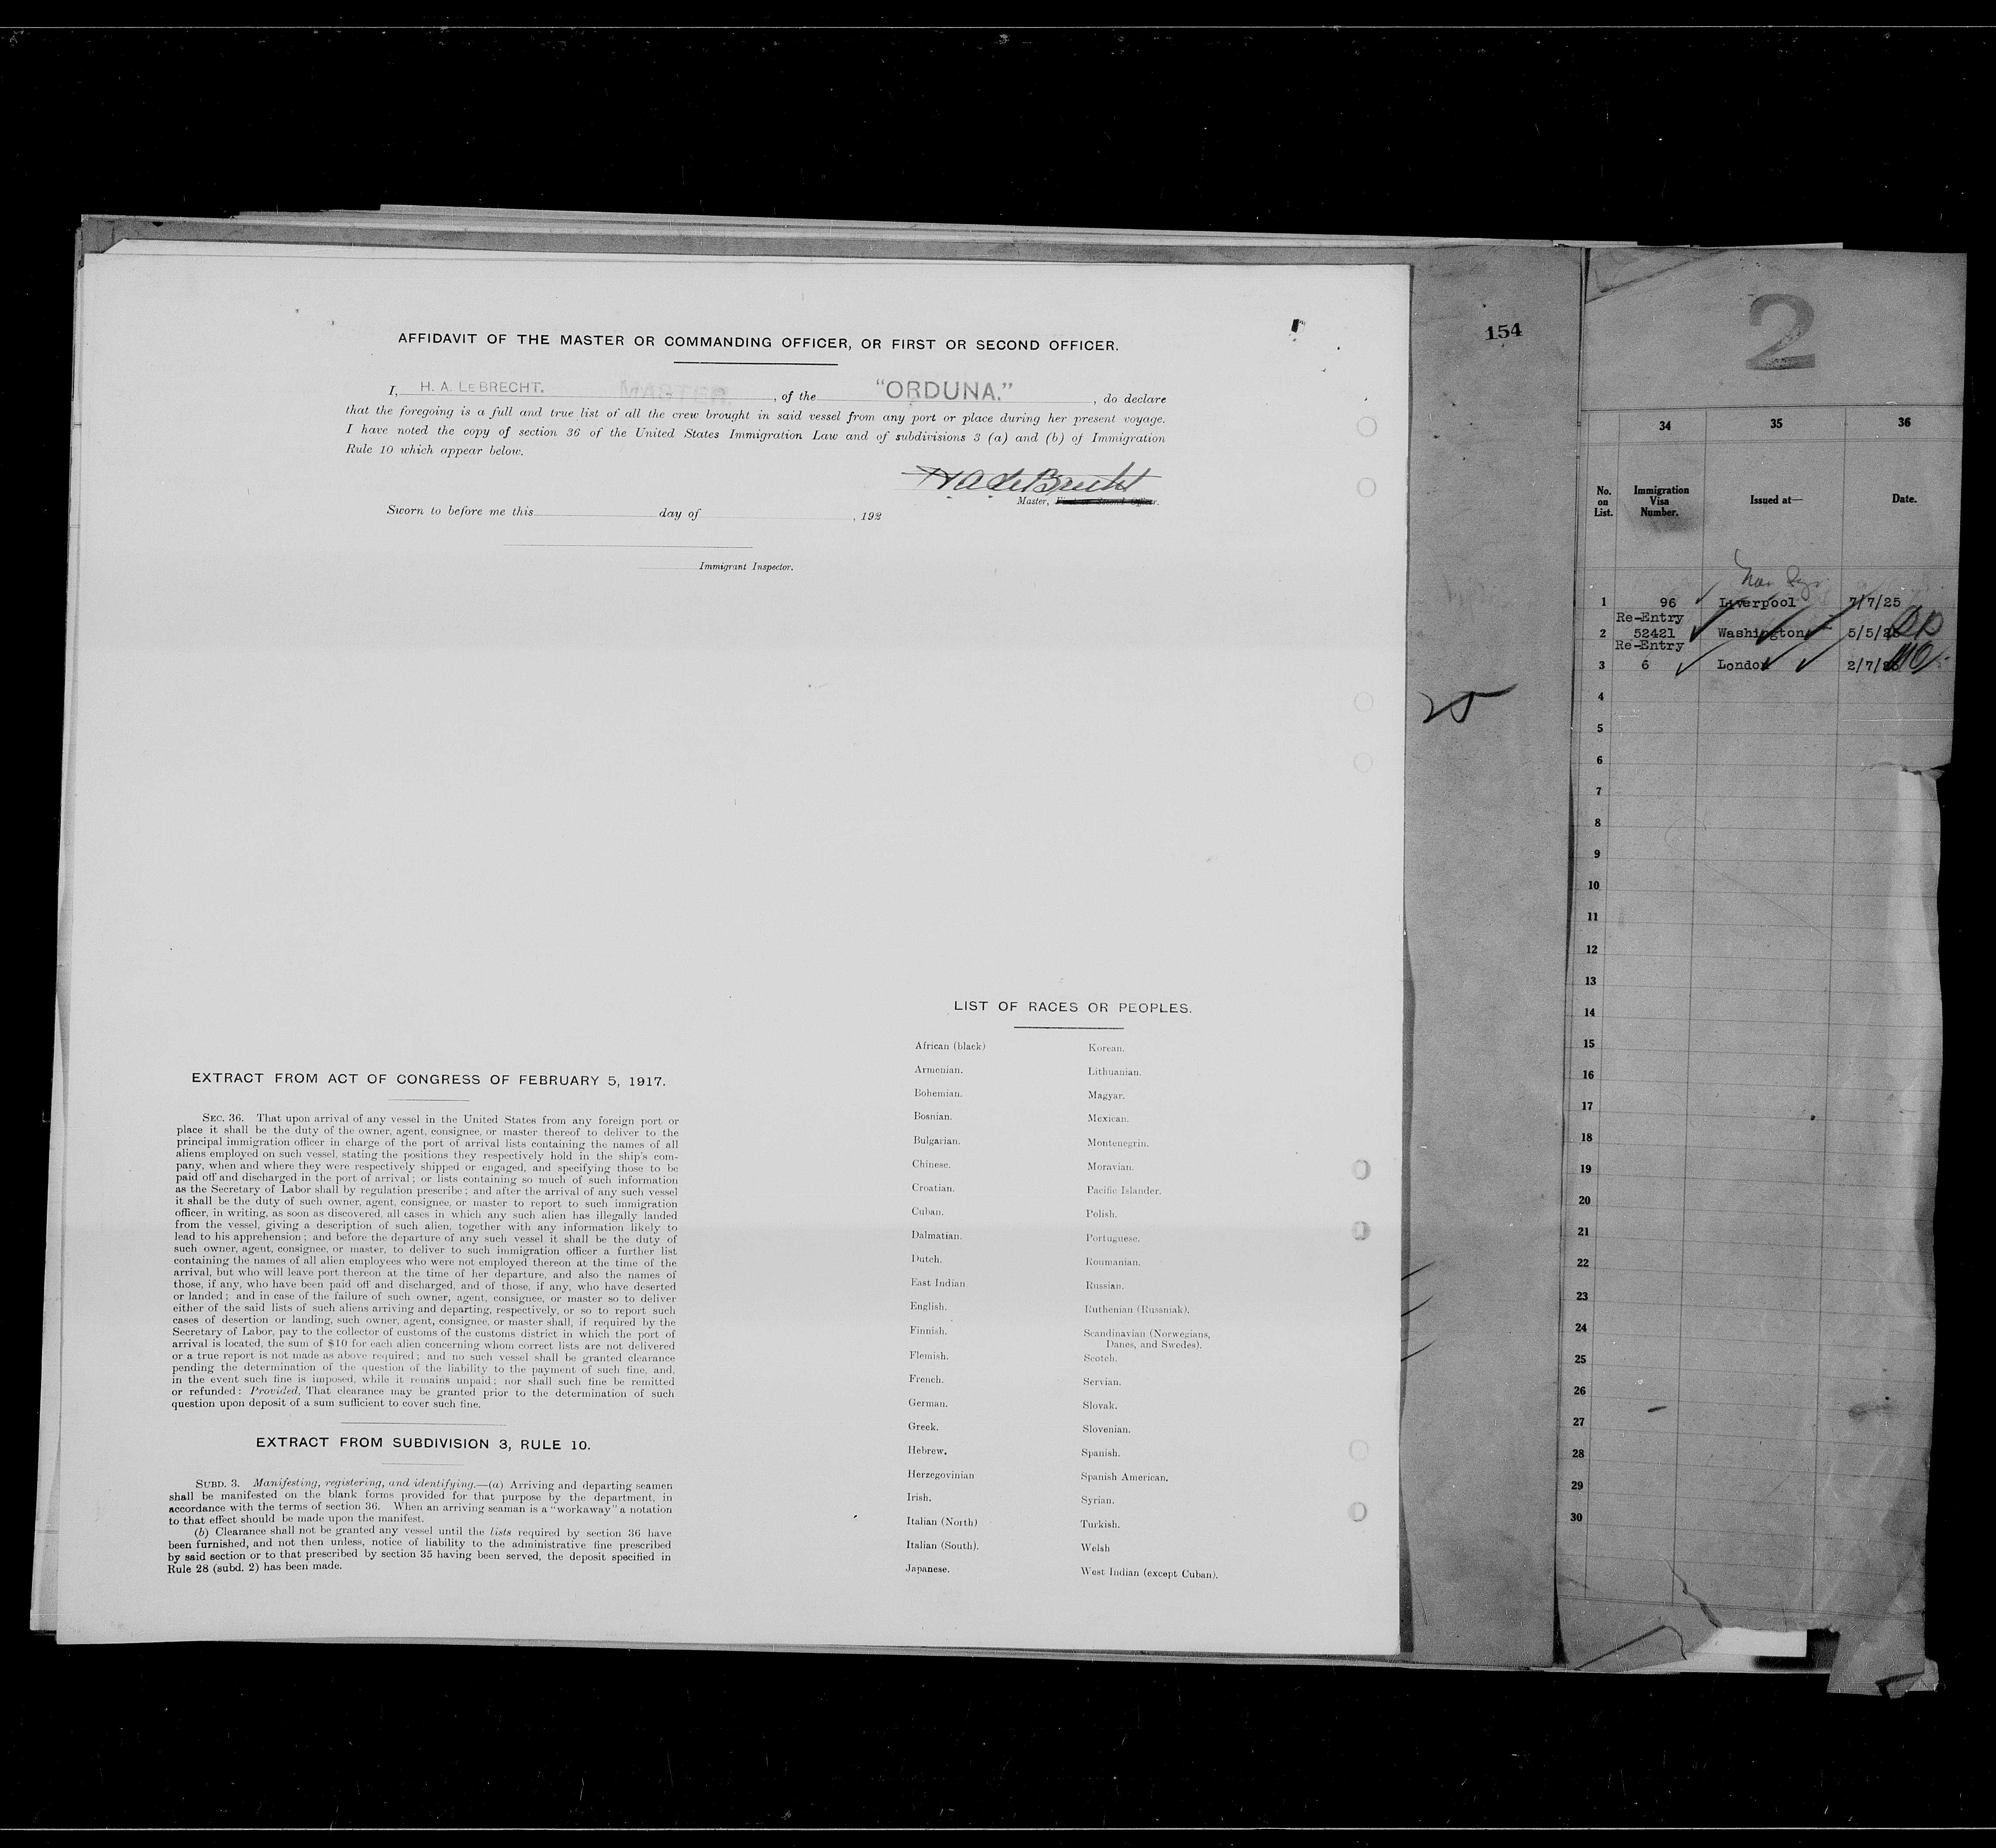 AFFIDAVIT OF THE MASTER OR COMMANDING OFFICER, OR FIRST OR SECOND OFFICER.
I, H. A. LEBRECHT. MASTER. , of the "ORDUNA." , do declare
that the foregoing is a full and true list of all the crew brought in said vessel from any port or place during her present voyage.
I have noted the copy of section 36 of the United States Immigration Law and of subdivisions 3 (a) and (b) of Immigration
Rule 10 which appear below.
H A LeBrecht
Master, First or Second Officer.
Sworn to before me this day of , 192
Immigrant Inspector.
EXTRACT FROM ACT OF CONGRESS OF FEBRUARY 5, 1917.
SEC. 36. That upon arrival of any vessel in the United States from any foreign port or
place it shall be the duty of the owner, agent, consignee, or master thereof to deliver to the
principal immigration officer in charge of the port of arrival lists containing the names of all
aliens employed on such vessel, stating the positions they respectively hold in the ship's com-
pany, when and where they were respectively shipped or engaged, and specifying those to be
paid off and discharged in the port of arrival; or lists containing so much of such information
as the Secretary of Labor shall by regulation prescribe; and after the arrival of any such vessel
it shall be the duty of such owner, agent, consignee, or master to report to such immigration
officer, in writing, as soon as discovered, all cases in which any such alien has illegally landed
from the vessel, giving a description of such alien, together with any information likely to
lead to his apprehension; and before the departure of any such vessel it shall be the duty of
such owner, agent, consignee, or master, to deliver to such immigration officer a further list
containing the names of all alien employees who were not employed thereon at the time of the
arrival, but who will leave port thereon at the time of her departure, and also the names of
those, if any, who have been paid off and discharged, and of those, if any, who have deserted
or landed; and in case of the failure of such owner, agent, consignee, or master so to deliver
either of the said lists of such aliens arriving and departing, respectively, or so to report such
cases of desertion or landing, such owner, agent, consignee, or master shall, if required by the
Secretary of Labor, pay to the collector of customs of the customs district in which the port of
arrival is located, the sum of $10 for each alien concerning whom correct lists are not delivered
or a true report is not made as above required; and no such vessel shall be granted clearance
pending the determination of the question of the liability to the payment of such fine, and,
in the event such fine is imposed, while it remains unpaid; nor shall such fine be remitted
or refunded: Provided, That clearance may be granted prior to the determination of such
question upon deposit of a sum sufficient to cover such fine.
EXTRACT FROM SUBDIVISION 3, RULE 10.
SUBD. 3. Manifesting, registering, and identifying.—(a) Arriving and departing seamen
shall be manifested on the blank forms provided for that purpose by the department, in
accordance with the terms of section 36. When an arriving seaman is a "workaway" a notation
to that effect should be made upon the manifest.
(b) Clearance shall not be granted any vessel until the lists required by section 36 have
been furnished, and not then unless, notice of liability to the administrative fine prescribed
by said section or to that prescribed by section 35 having been served, the deposit specified in
Rule 28 (subd. 2) has been made.
LIST OF RACES OR PEOPLES.
African (black) Korean.
Armenian. Lithuanian.
Bohemian. Magyar.
Bosnian. Mexican.
Bulgarian. Montenegrin.
Chinese. Moravian.
Croatian. Pacific Islander.
Cuban. Polish.
Dalmatian. Portuguese.
Dutch. Roumanian.
East Indian Russian.
English. Ruthenian (Russniak).
Finnish. Scandinavian (Norwegians,
Danes, and Swedes).
Flemish. Scotch.
French. Servian.
German. Slovak.
Greek. Slovenian.
Hebrew. Spanish.
Herzegovinian Spanish American.
Irish. Syrian.
Italian (North) Turkish.
Italian (South). Welsh
Japanese. West Indian (except Cuban).
154
25
2
34 35 36
No. on List. Immigration Visa Number. Issued at— Date.
1 96 Liverpool 7/7/25
Re-Entry
2 52421 Washington 5/5/25
Re-Entry
3 6 London 2/7/25
4
5
6
7
8
9
10
11
12
13
14
15
16
17
18
19
20
21
22
23
24
25
26
27
28
29
30